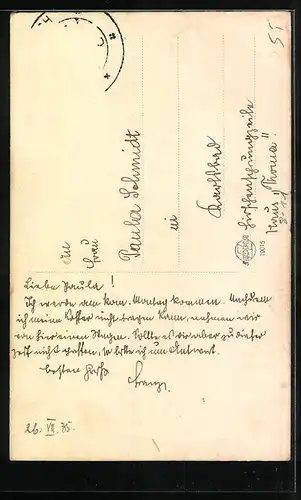 An
Frau
Paula Schmidt
in
Karlsbad
Hirschensprungzeile
Haus "Thoma"
10015
Liebe Paula!
Ich werde am kom. Montag kommen. Nachdem
ich meine Koffer nicht tragen kann, nehmen wir
von hier einen Wagen. Sollte es dir aber zu dieser
Zeit nicht passen, so bitte ich um Antwort.
besten Gruß
Franz
26. VII. 35.